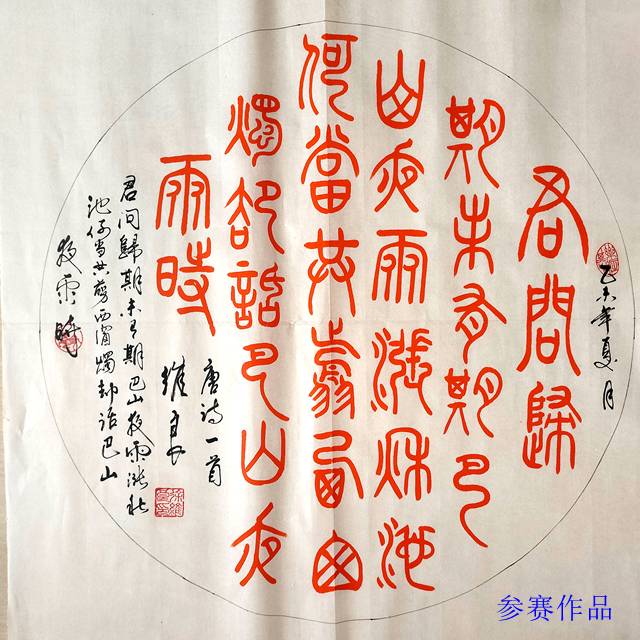 乙未年夏月
君問歸
期未有期巴
山夜雨漲秋池
何當共剪西窗
燭却話巴山夜
雨時
唐诗一首
君问歸期未有期巴山夜雨漲秋
池何当共剪西窗燭却话巴山
夜雨時
参赛作品